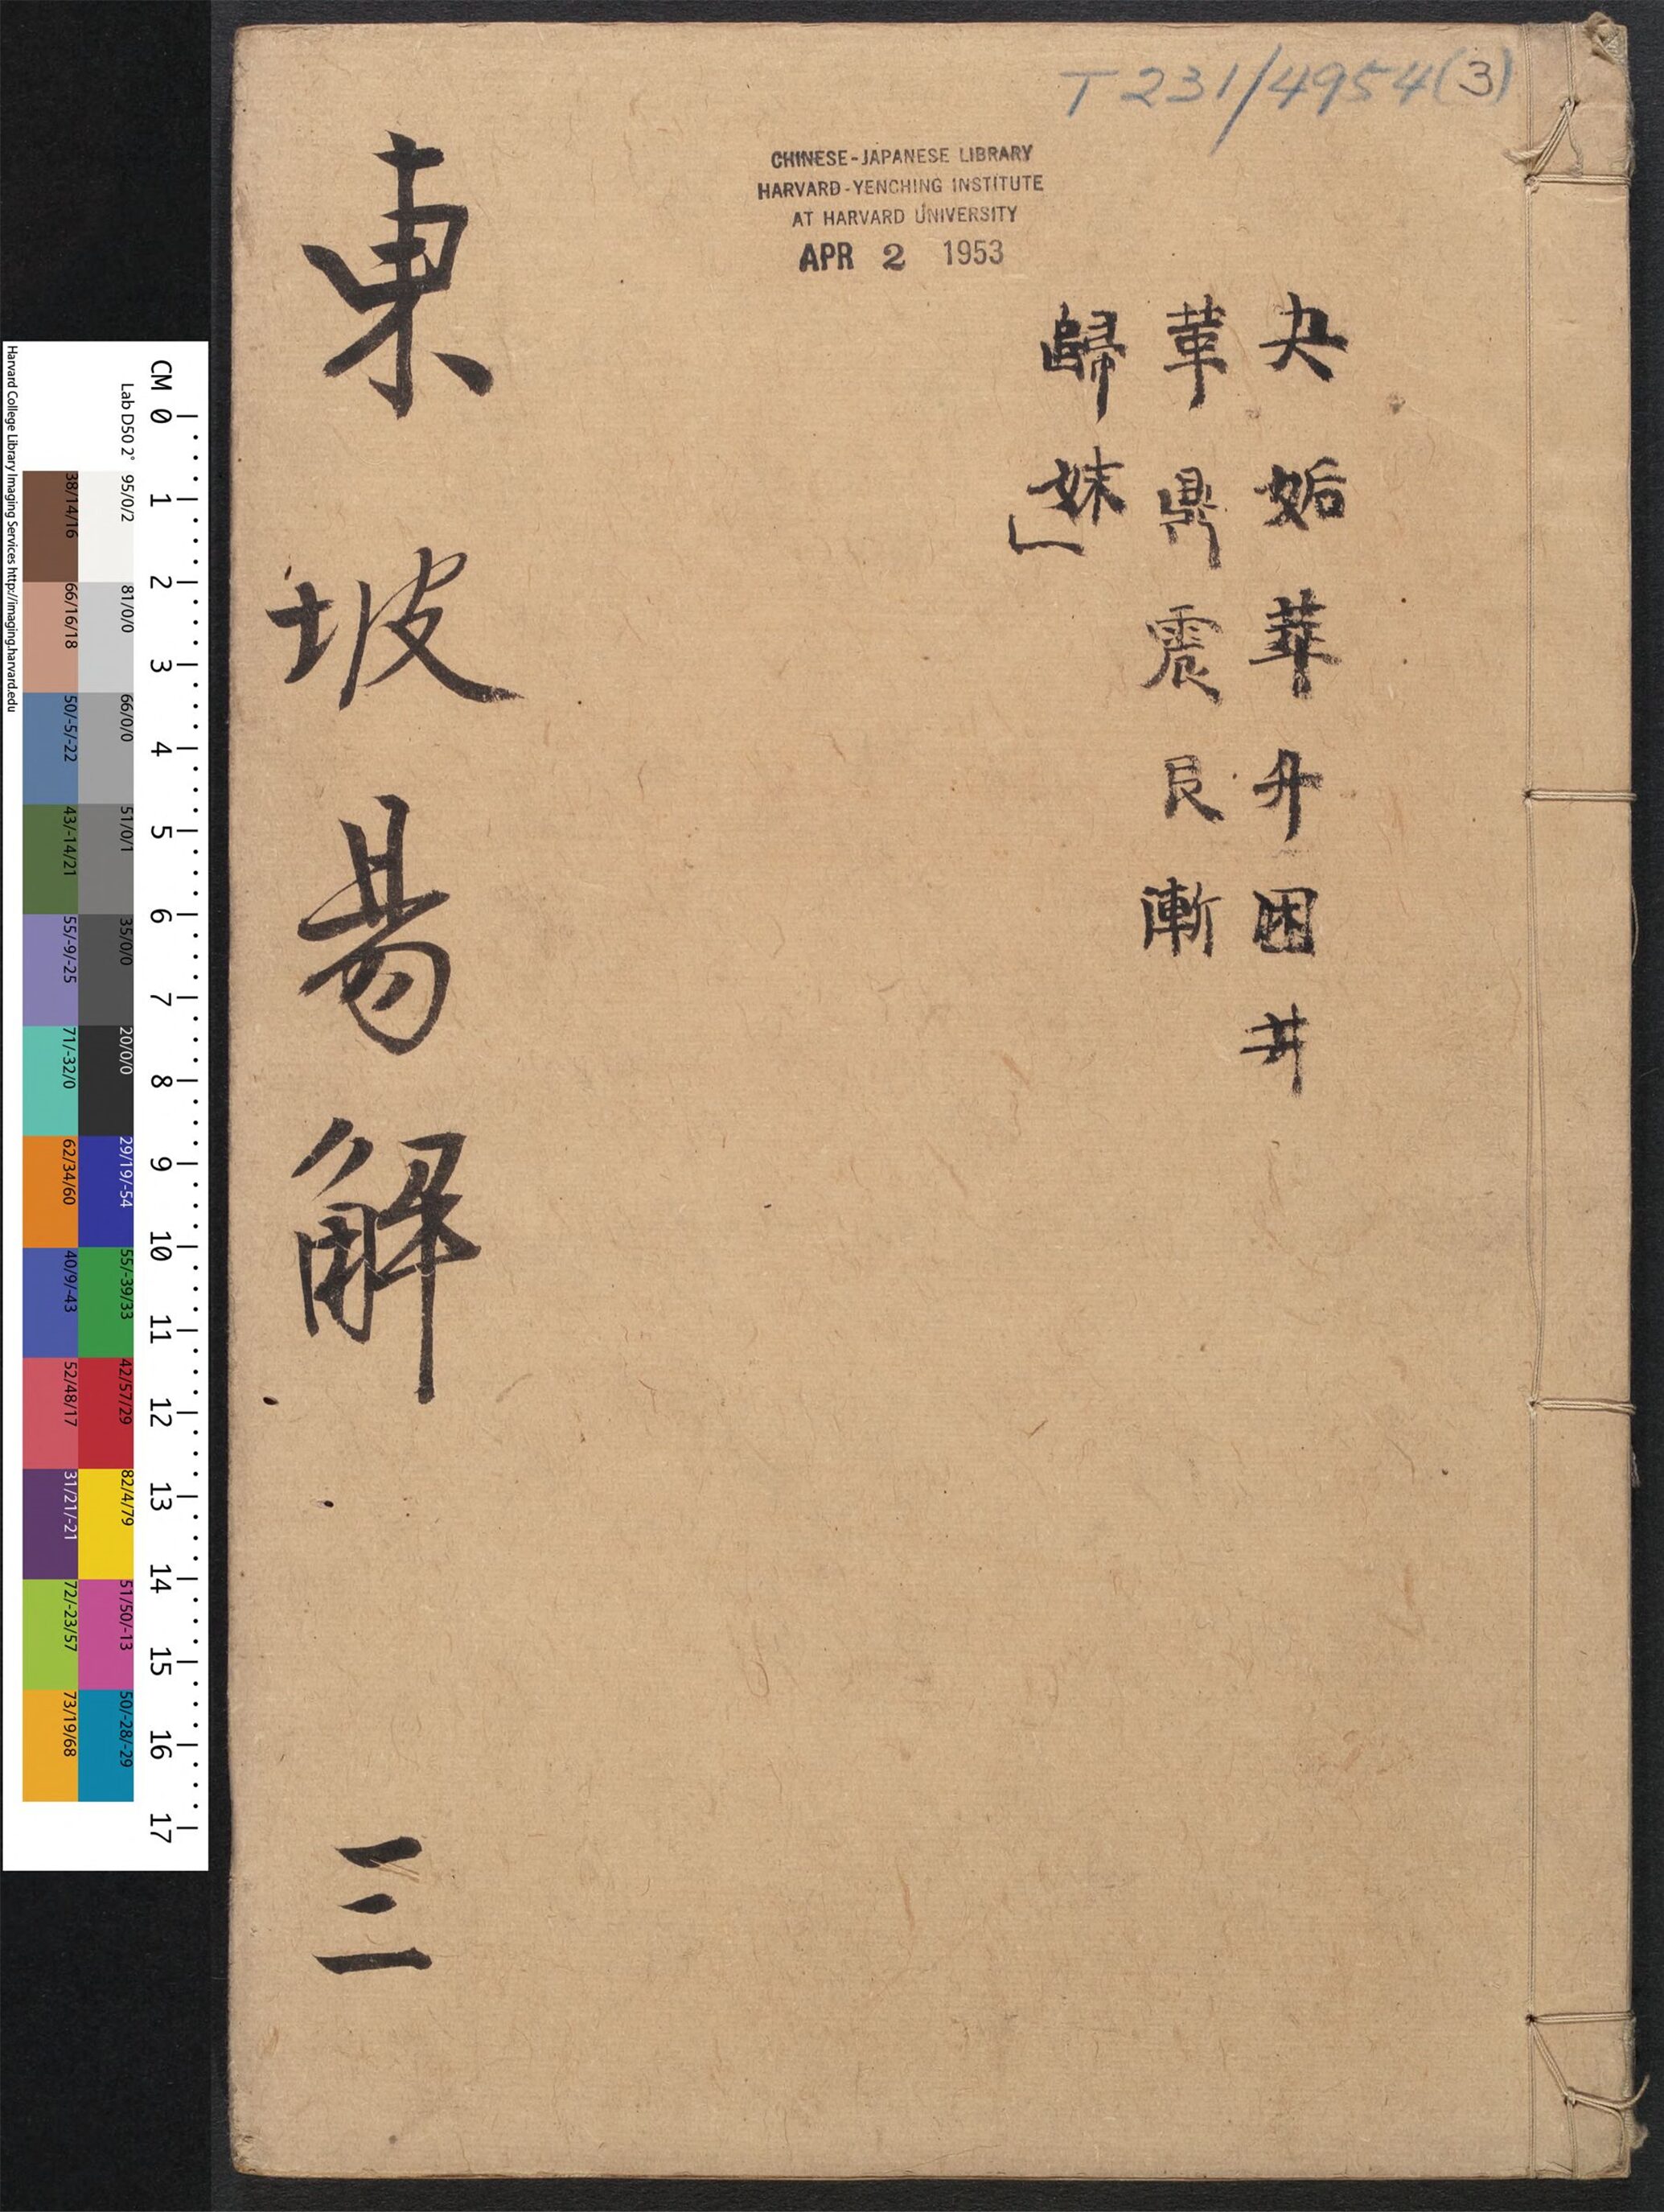 T231/4954(3)
CHINESE-JAPANESE LIBRARY
HARVARD-YENCHING INSTITUTE
AT HARVARD UNIVERSITY
APR 2 1953
夬姤萃升困井
革鼎震艮漸
歸妹
東坡易解
三
CM 0 1 2 3 4 5 6 7 8 9 10 11 12 13 14 15 16 17
Lab D50 2° 95/0/2 81/0/0 66/0/0 51/0/1 35/0/0 20/0/0 29/19/-54 55/-39/33 42/57/29 82/4/79 51/50/-13 50/-28/-29
38/14/16 66/16/18 50/-5/-22 43/-14/21 55/-9/-25 71/-32/0 62/34/60 40/9/-43 52/48/17 31/21/-21 72/-23/57 73/19/68
Harvard College Library Imaging Services http://imaging.harvard.edu